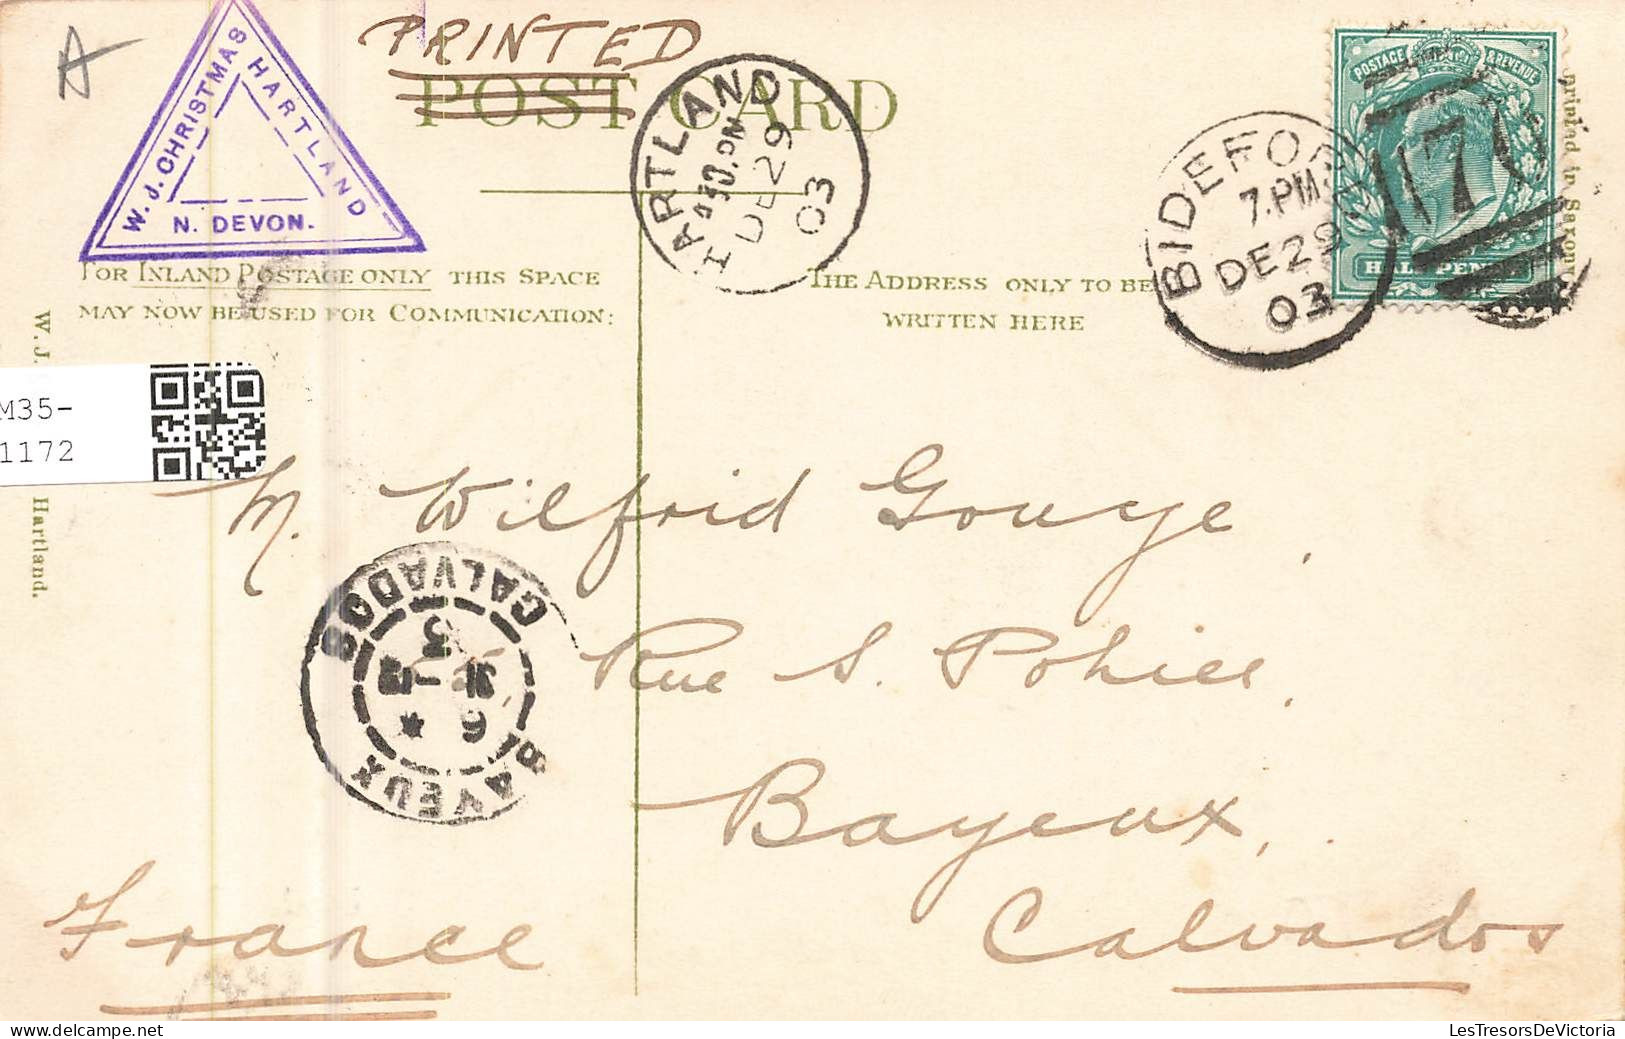 A
W. J. CHRISTMAS
HARTLAND
N. DEVON.
PRINTED
POST CARD
HARTLAND
DE 29
03
BIDEFORD
7. PM
DE 29
03
POSTAGE & REVENUE
HALFPENNY
printed in Saxony
FOR INLAND POSTAGE ONLY THIS SPACE
MAY NOW BE USED FOR COMMUNICATION:
THE ADDRESS ONLY TO BE
WRITTEN HERE
W. J.
Hartland.
M35-
1172
M. Wilfrid Gouye,
Rue S. Patrice,
Bayeux,
Calvados
France
BAYEUX
CALVADOS
LesTresorsDeVictoria